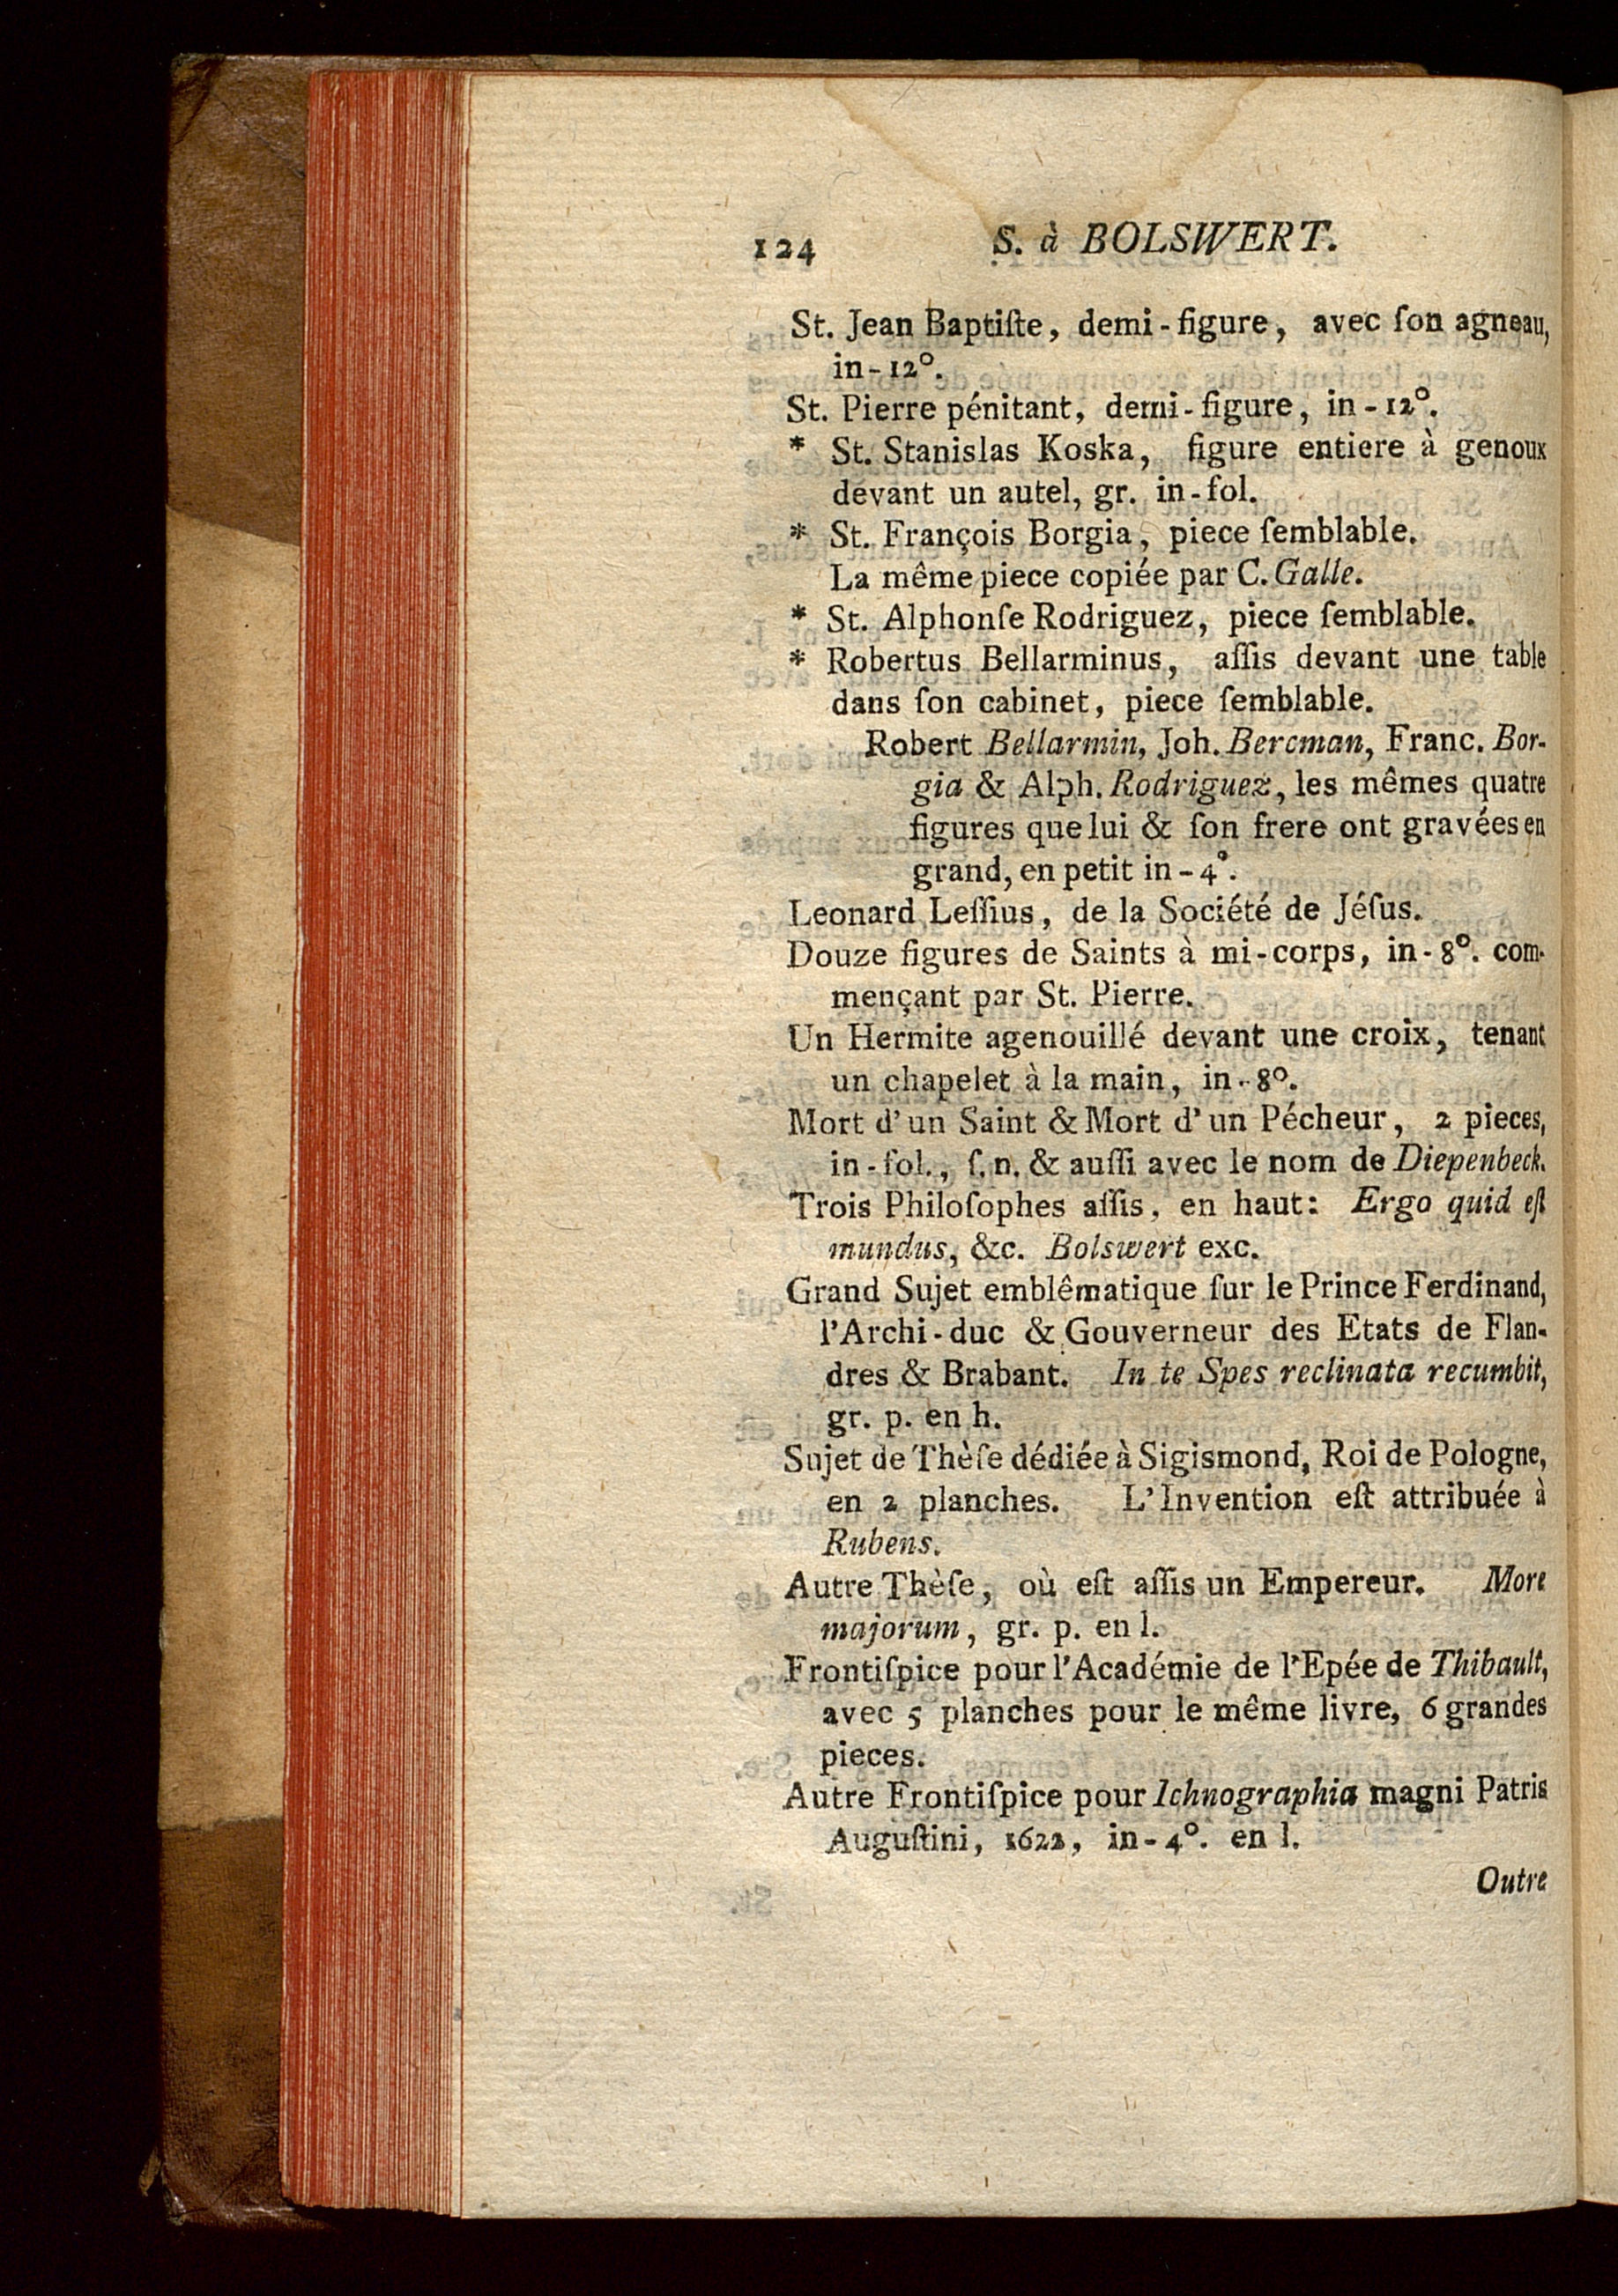 124 S. à BOLSWERT.
St. Jean Baptiſte, demi-figure, avec ſon agneau,
in-12°.
St. Pierre pénitant, demi-figure, in-12°.
* St. Stanislas Koska, figure entiere à genoux
devant un autel, gr. in-fol.
* St. François Borgia, piece ſemblable.
La même piece copiée par C. Galle.
* St. Alphonſe Rodriguez, piece ſemblable.
* Robertus Bellarminus, aſſis devant une table
dans ſon cabinet, piece ſemblable.
Robert Bellarmin, Joh. Bercman, Franc. Bor-
gia & Alph. Rodriguez, les mêmes quatre
figures que lui & ſon frere ont gravées en
grand, en petit in-4°.
Leonard Leſſius, de la Société de Jéſus.
Douze figures de Saints à mi-corps, in-8°. com-
mençant par St. Pierre.
Un Hermite agenouillé devant une croix, tenant
un chapelet à la main, in-8°.
Mort d'un Saint & Mort d'un Pécheur, 2 pieces,
in-fol., ſ. n. & auſſi avec le nom de Diepenbeck.
Trois Philoſophes aſſis, en haut: Ergo quid eſt
mundus, &c. Bolswert exc.
Grand Sujet emblêmatique ſur le Prince Ferdinand,
l'Archi-duc & Gouverneur des Etats de Flan-
dres & Brabant. In te Spes reclinata recumbit,
gr. p. en h.
Sujet de Thèſe dédiée à Sigismond, Roi de Pologne,
en 2 planches. L'Invention eſt attribuée à
Rubens.
Autre Thèſe, où eſt aſſis un Empereur. More
majorum, gr. p. en l.
Frontiſpice pour l'Académie de l'Epée de Thibault,
avec 5 planches pour le même livre, 6 grandes
pieces.
Autre Frontiſpice pour Ichnographia magni Patris
Auguſtini, 1622, in-4°. en l.
Outre